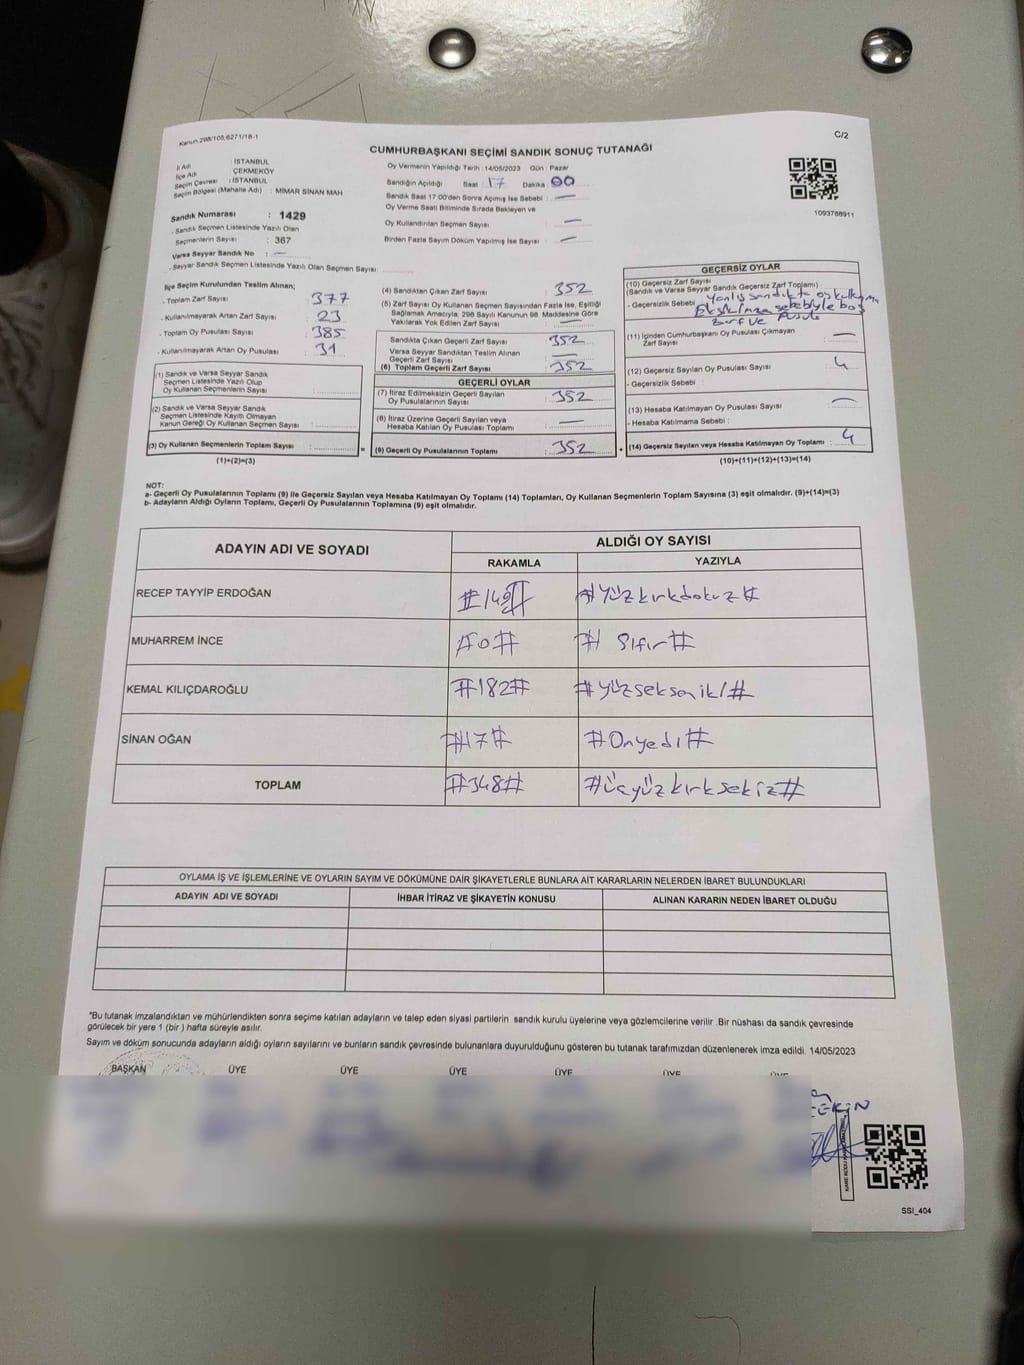 Kanun.298/105,6271/18-1
C/2
CUMHURBAŞKANI SEÇİMİ SANDIK SONUÇ TUTANAĞI
İl Adı : İSTANBUL
İlçe Adı : ÇEKMEKÖY
Seçim Çevresi : İSTANBUL
Seçim Bölgesi (Mahalle Adı) : MİMAR SİNAN MAH
Sandık Numarası : 1429
. Sandık Seçmen Listesinde Yazılı Olan
Seçmenlerin Sayısı : 367
Varsa Seyyar Sandık No : —
. Seyyar Sandık Seçmen Listesinde Yazılı Olan Seçmen Sayısı:
Oy Vermenin Yapıldığı Tarih :14/05/2023 Gün : Pazar
Sandığın Açıldığı Saat : 17 Dakika 00
Sandık Saat 17:00'den Sonra Açımış İse Sebebi : —
Oy Verme Saati Bitiminde Sırada Bekleyen ve
Oy Kullandırılan Seçmen Sayısı —
Birden Fazla Sayım Döküm Yapılmış İse Sayısı : —
1093766911
İlçe Seçim Kurulundan Teslim Alınan;
. Toplam Zarf Sayısı 377
. Kullanılmayarak Artan Zarf Sayısı 23
. Toplam Oy Pusulası Sayısı 385
. Kullanılmayarak Artan Oy Pusulası 31
(1) Sandık ve Varsa Seyyar Sandık
Seçmen Listesinde Yazılı Olup
Oy Kullanan Seçmenlerin Sayısı
(2) Sandık ve Varsa Seyyar Sandık
Seçmen Listesinde Kayıtlı Olmayan
Kanun Gereği Oy Kullanan Seçmen Sayısı
(3) Oy Kullanan Seçmenlerin Toplam Sayısı
(1)+(2)=(3)
(4) Sandıktan Çıkan Zarf Sayısı : 352
(5) Zarf Sayısı Oy Kullanan Seçmen Sayısından Fazla İse, Eşitliği
Sağlamak Amacıyla, 298 Sayılı Kanunun 98. Maddesine Göre
Yakılarak Yok Edilen Zarf Sayısı : —
Sandıkta Çıkan Geçerli Zarf Sayısı : 352
Varsa Seyyar Sandıktan Teslim Alınan
Geçerli Zarf Sayısı : —
(6) Toplam Geçerli Zarf Sayısı : 352
GEÇERLİ OYLAR
(7) İtiraz Edilmeksizin Geçerli Sayılan
Oy Pusulalarının Sayısı : 352
(8) İtiraz Üzerine Geçerli Sayılan veya
Hesaba Katılan Oy Pusulası Toplamı : —
(9) Geçerli Oy Pusulalarının Toplamı : 352
GEÇERSİZ OYLAR
(10) Geçersiz Zarf Sayısı
(Sandık ve Varsa Seyyar Sandık Geçersiz Zarf Toplamı)
- Geçersizlik Sebebi : Yanlış sandıkta oy kullanma
Eksik imza sebebiyle boş
zarf ve Pusula
(11) İçinden Cumhurbaşkanı Oy Pusulası Çıkmayan
Zarf Sayısı : —
(12) Geçersiz Sayılan Oy Pusulası Sayısı : 4
- Geçersizlik Sebebi :
(13) Hesaba Katılmayan Oy Pusulası Sayısı : —
- Hesaba Katılmama Sebebi :
(14) Geçersiz Sayılan veya Hesaba Katılmayan Oy Toplamı : 4
(10)+(11)+(12)+(13)=(14)
NOT:
a- Geçerli Oy Pusulalarının Toplamı (9) ile Geçersiz Sayılan veya Hesaba Katılmayan Oy Toplamı (14) Toplamları, Oy Kullanan Seçmenlerin Toplam Sayısına (3) eşit olmalıdır. (9)+(14)=(3)
b- Adayların Aldığı Oyların Toplamı, Geçerli Oy Pusulalarının Toplamına (9) eşit olmalıdır.
ADAYIN ADI VE SOYADI ALDIĞI OY SAYISI
RAKAMLA YAZIYLA
RECEP TAYYİP ERDOĞAN #149# #Yüzkırkdokuz#
MUHARREM İNCE #0# # Sıfır#
KEMAL KILIÇDAROĞLU #182# #yüzsekseniki#
SİNAN OĞAN #17# #Onyedi#
TOPLAM #348# #üçyüzkırksekiz#
OYLAMA İŞ VE İŞLEMLERİNE VE OYLARIN SAYIM VE DÖKÜMÜNE DAİR ŞİKAYETLERLE BUNLARA AİT KARARLARIN NELERDEN İBARET BULUNDUKLARI
ADAYIN ADI VE SOYADI İHBAR İTİRAZ VE ŞİKAYETİN KONUSU ALINAN KARARIN NEDEN İBARET OLDUĞU
"Bu tutanak imzalandıktan ve mühürlendikten sonra seçime katılan adayların ve talep eden siyasi partilerin sandık kurulu üyelerine veya gözlemcilerine verilir .Bir nüshası da sandık çevresinde
görülecek bir yere 1 (bir ) hafta süreyle asılır.
Sayım ve döküm sonucunda adayların aldığı oyların sayılarını ve bunların sandık çevresinde bulunanlara duyurulduğunu gösteren bu tutanak tarafımızdan düzenlenerek imza edildi. 14/05/2023
BAŞKAN ÜYE ÜYE ÜYE ÜYE ÜYE ÜYE
SSI_404